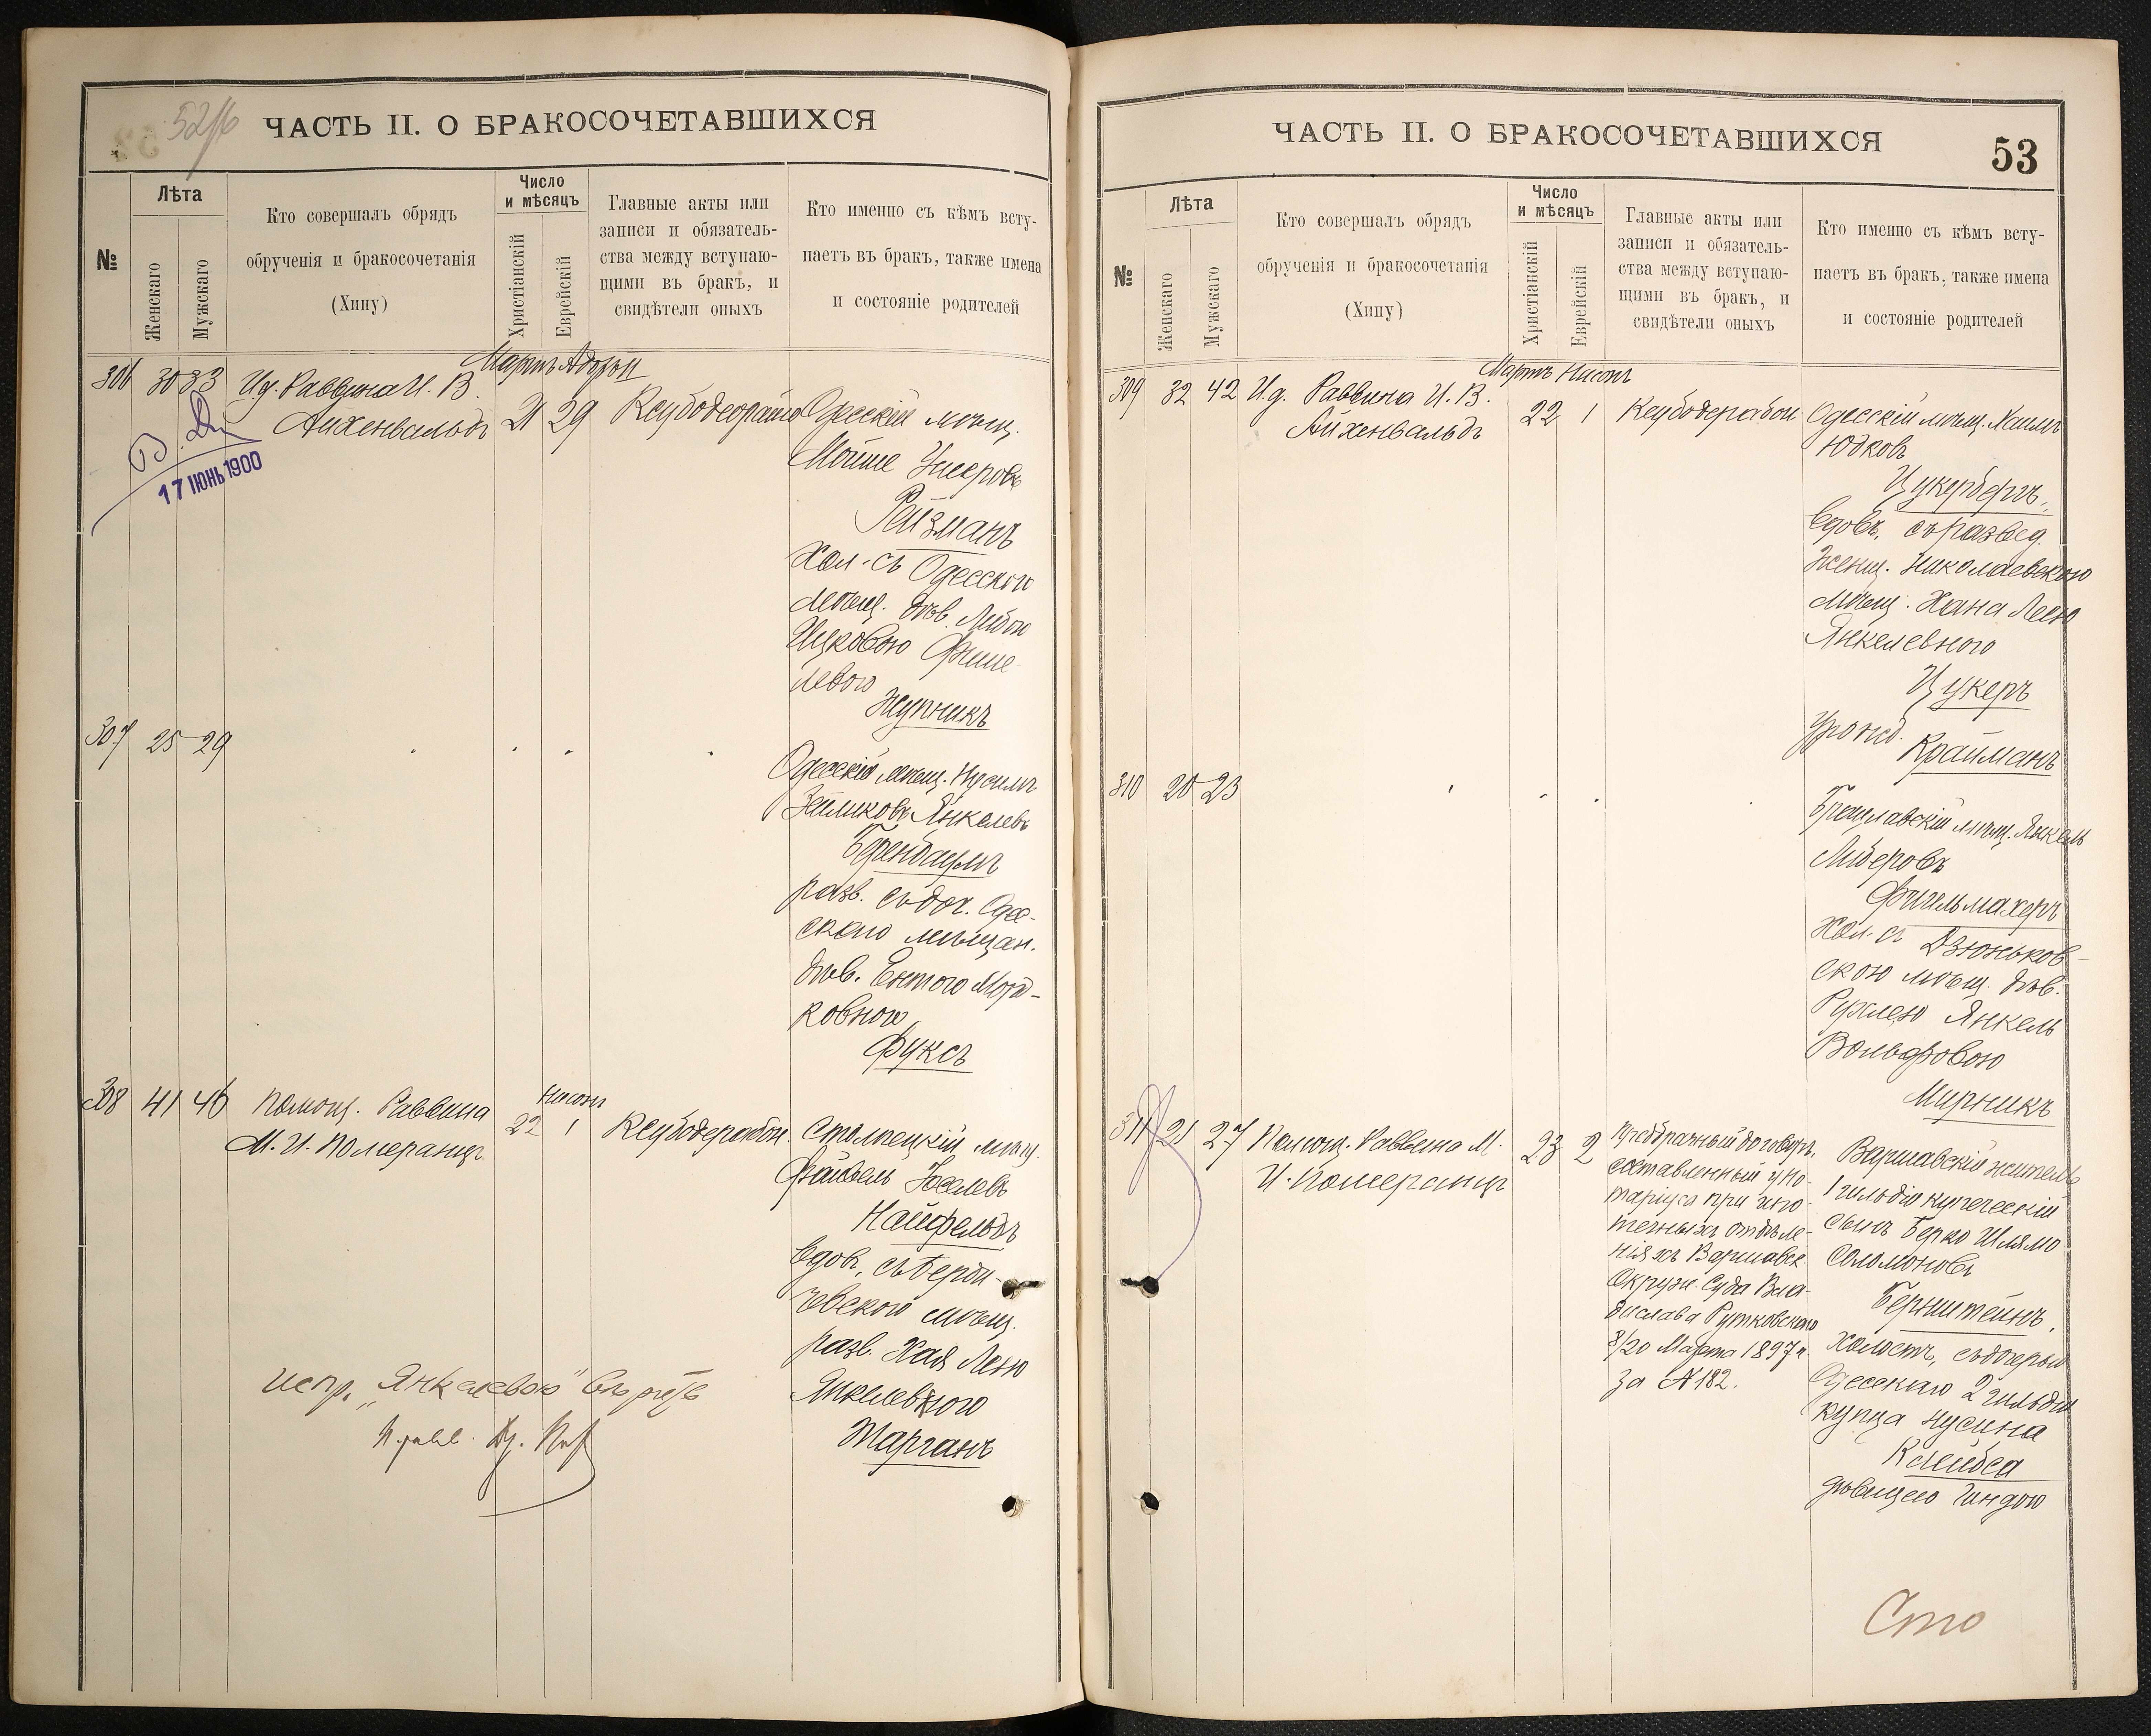 52/б
ЧАСТЬ II. О БРАКОСОЧЕТАВШИХСЯ
№
Лѣта
Женскаго
Мужскаго
Кто совершалъ обрядъ
обрученія и бракосочетанія
(Хипу)
Число
и мѣсяцъ
Христіанскій
Еврейскій
Главные акты или
записи и обязатель-
ства между вступаю-
щими въ бракъ, и
свидѣтели оныхъ
Кто именно съ кѣмъ всту-
паетъ въ бракъ, также имена
и состояніе родителей
Мартъ
306 30 33 И.д. Раввина И. В.
Айхенвальдъ 21 29
17 ІЮНЬ 1900
Одесскій мѣщ.
Мойше
Рейзманъ
Хол. съ Одесскою
мѣщ. дѣв.
Ицковою Фише-
левою
Жупникъ
307 25 29
Одесскій мѣщ. Нусимъ
Зейликовъ Янкелевъ
разв. съ доч. Одес-
скаго мѣщан.
дѣв. Ентою Морд-
ковною
Фуксъ
308 41 46 Помощ. Раввина
М. И. Померанцъ
Нисонъ
22 1 Ксубодерабон.
мѣщ.
Файвель Іоселевъ
Найфельдъ
Вдов., съ Берди-
чевскою мѣщ.
разв. Хая Лею
Янкелевною
Марганъ
испр. „Янкелевою"
ЧАСТЬ II. О БРАКОСОЧЕТАВШИХСЯ
53
№
Лѣта
Женскаго
Мужскаго
Кто совершалъ обрядъ
обрученія и бракосочетанія
(Хипу)
Число
и мѣсяцъ
Христіанскій
Еврейскій
Главные акты или
записи и обязатель-
ства между вступаю-
щими въ бракъ, и
свидѣтели оныхъ
Кто именно съ кѣмъ всту-
паетъ въ бракъ, также имена
и состояніе родителей
Мартъ Нисонъ
309 32 42 И.д. Раввина И. В.
Айхенвальдъ 22 1 Ксубодерабон
Одесскій мѣщ. Хаимъ
Юдковъ
Цукербергъ,
вдов., съ развед.
женщ. Николаевскою
мѣщ. Хана Лею
Янкелевною
Цукеръ
урожд. Крайманъ
310 20 23
Брацлавскій мѣщ. Янкель
Либеровъ
Фигельмахеръ
Хол. съ Дзюньков-
скою мѣщ. дѣв.
Рухлею Янкель
Вольфовою
Мирникъ
311 21 27 Помощ. Раввина М.
И. Померанцъ 23 2
Предбрачный договоръ,
составленный у но-
таріуса при ипо-
течныхъ отдѣле-
ніяхъ Варшавск.
Окружн. Суда Вла-
дислава Рутковскаго
8/20 Марта 1897 г.
за № 182.
Варшавскій житель
1 гильдіи купеческій
сынъ Берко Шлямо
Соломоновъ
Бернштейнъ,
холостъ, съ дочерью
Одесскаго 2 гильдіи
купца Нусина
Клейбса
дѣвицею Гиндою
Сто